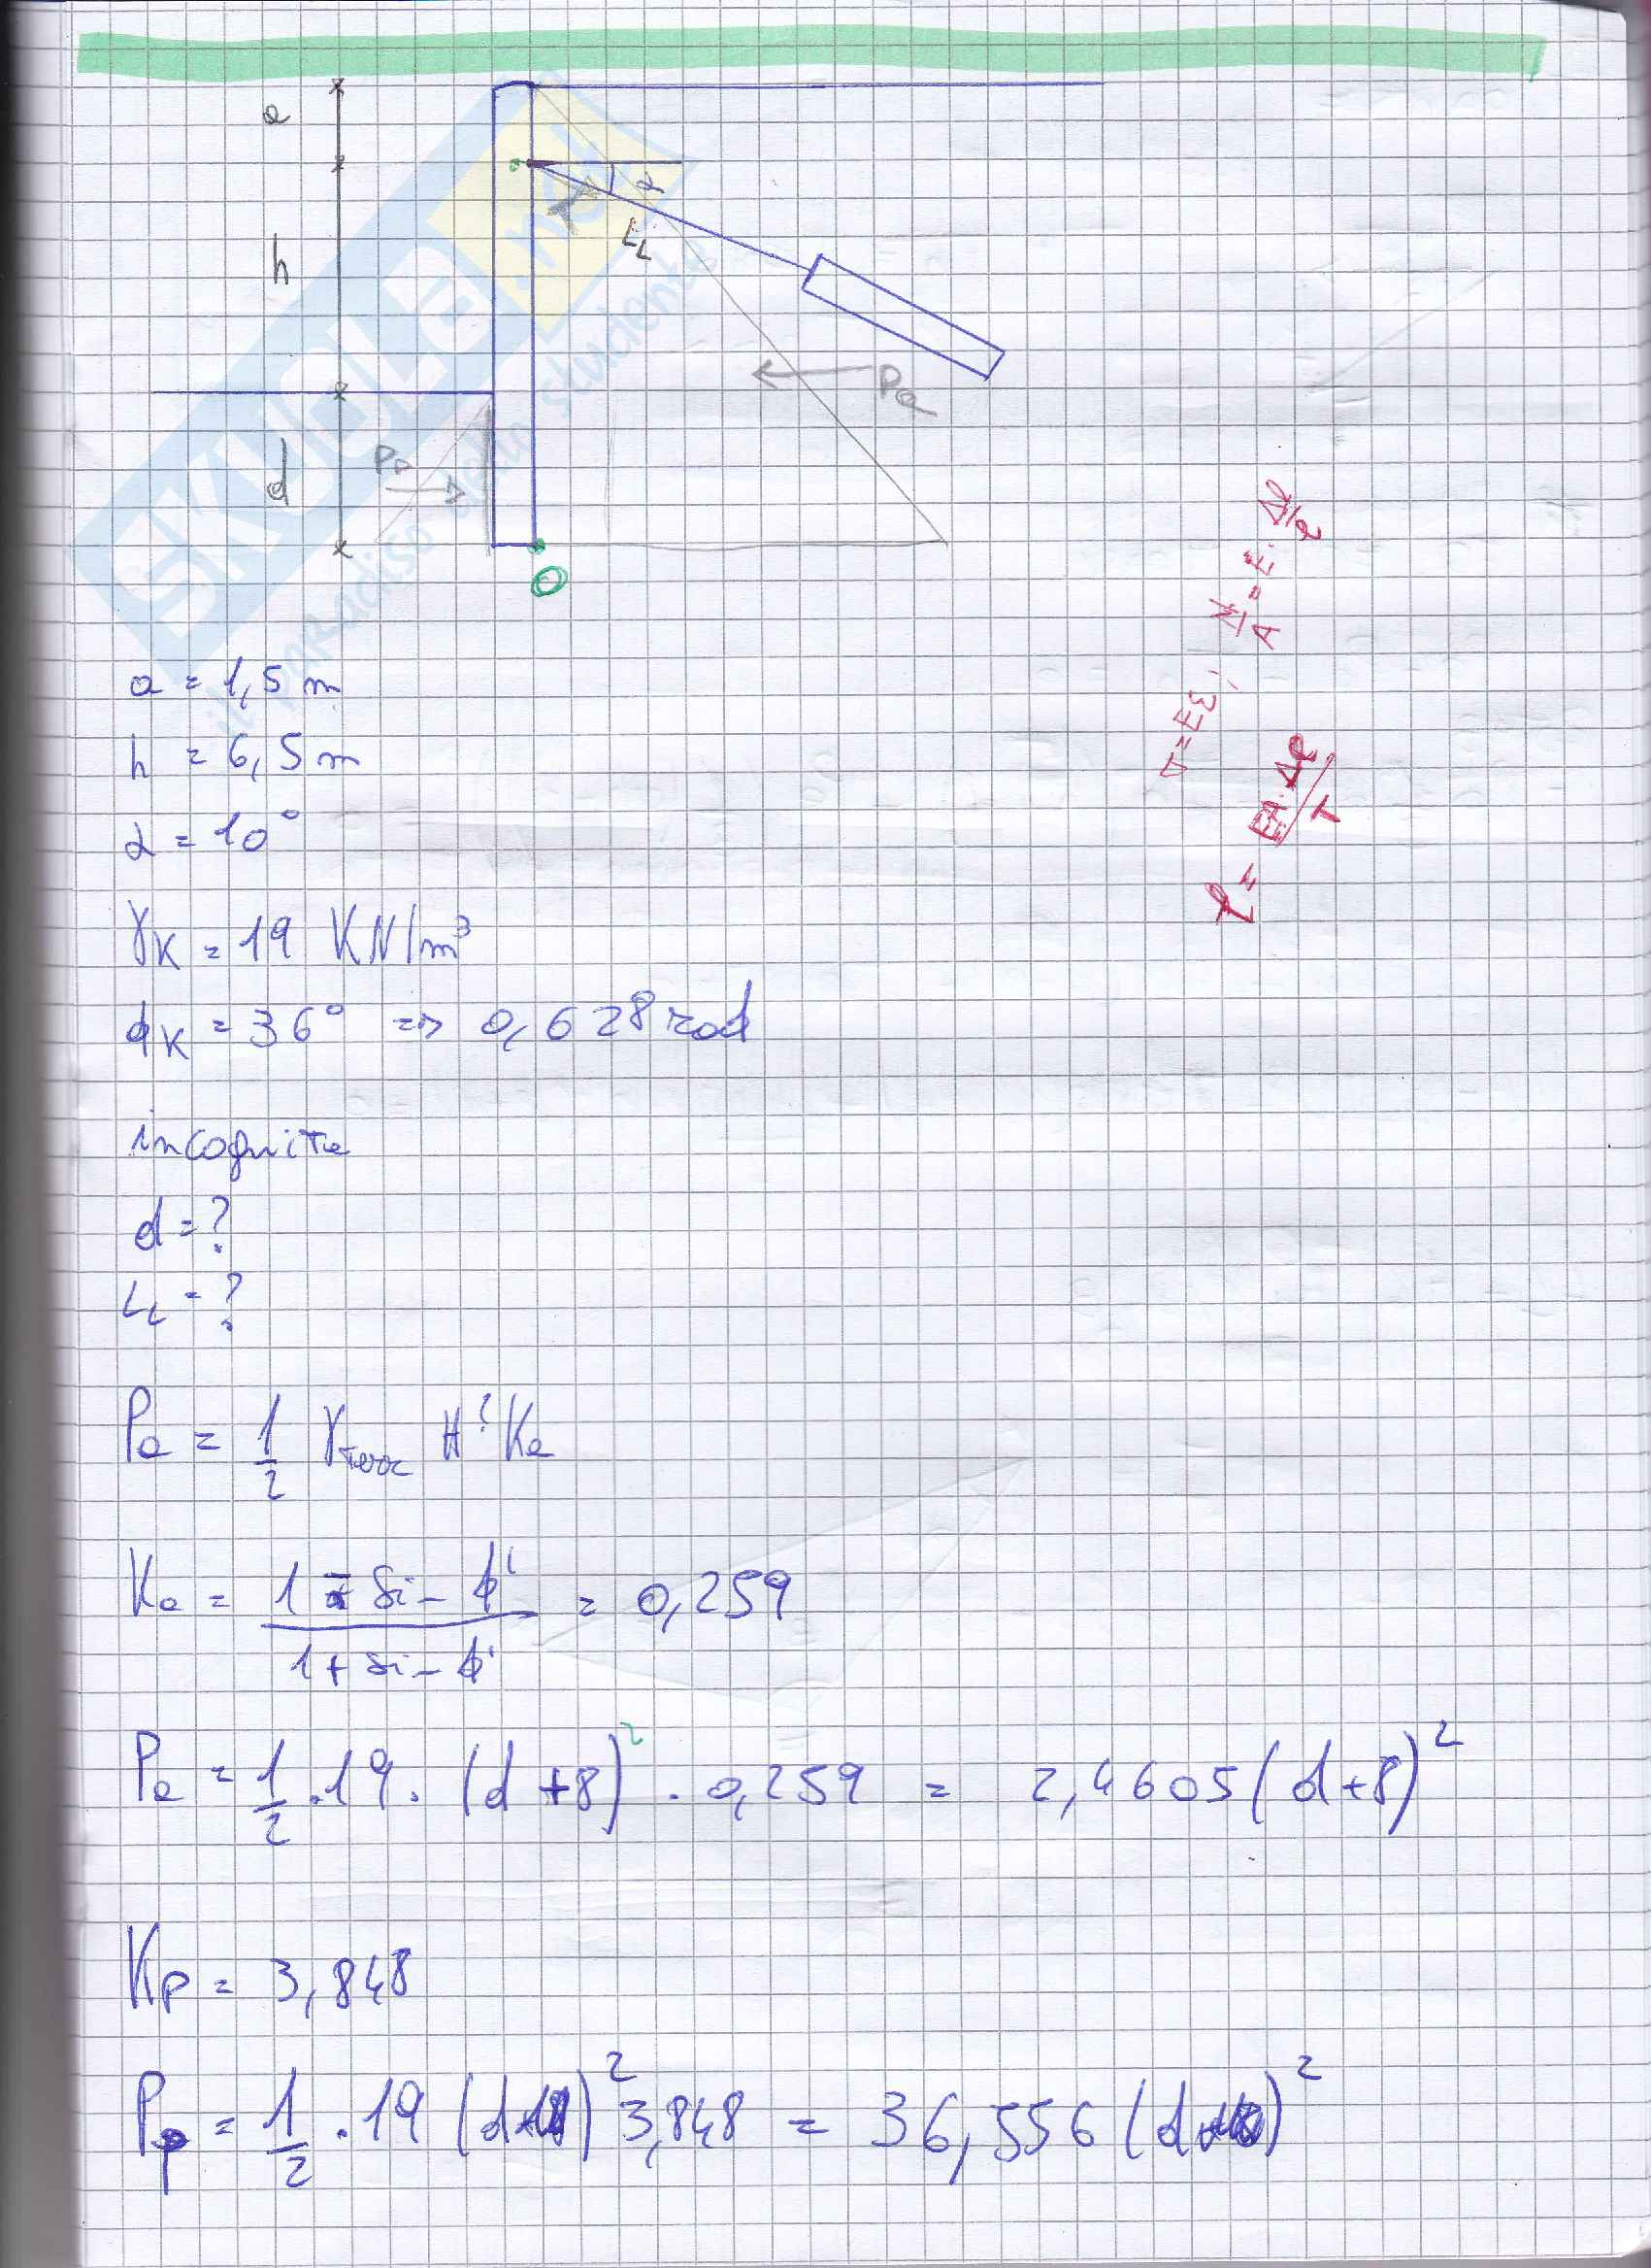 a
h
d
α
T
LL
Pa
Pp
O
σ=Eε ; N/A = E · Δl/l
l = EA·Δl/T
SKUOLA.net
il paradiso dello studente
a = 1,5 m
h = 6,5 m
α = 10°
γK = 19 KN/m³
ϕK = 36° => 0,628 rad
incognite
d = ?
LL = ?
Pa = 1/2 γterr H² Ka
Ka = 1 - sin ϕ' / 1 + sin ϕ' = 0,259
Pa = 1/2 · 19 · (d+8)² · 0,259 = 2,4605 (d+8)²
Kp = 3,848
Pp = 1/2 · 19 (d)² 3,848 = 36,556 (d)²